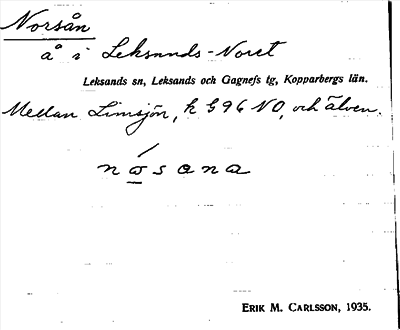 Norsån
å i Leksands-Noret
Leksands sn, Leksands och Gagnefs tg, Kopparbergs län.
Mellan Limsjön, k G 96 NO, och älven.
nósana
ERIK M. CARLSSON, 1935.